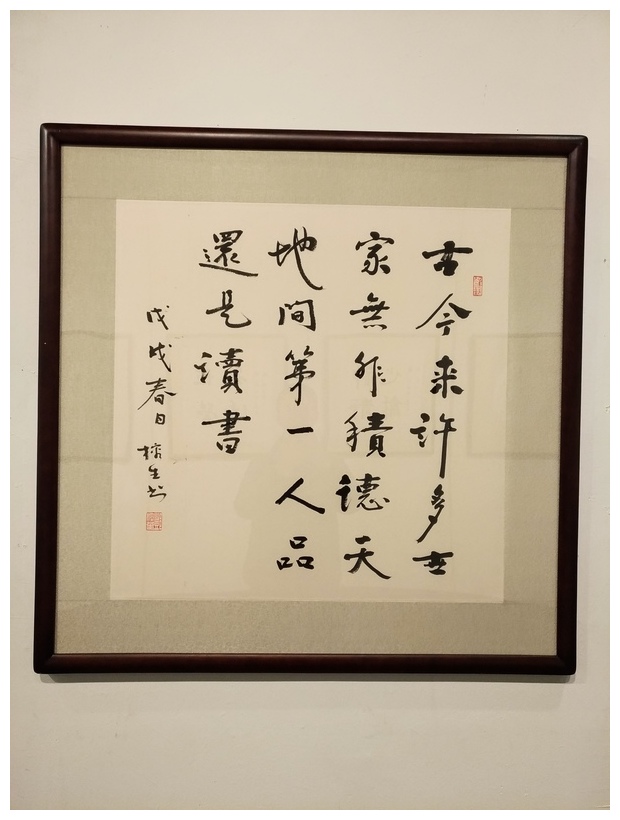 古今来許多世
家無非積德天
地間第一人品
還是讀書
戊戌春日 生书